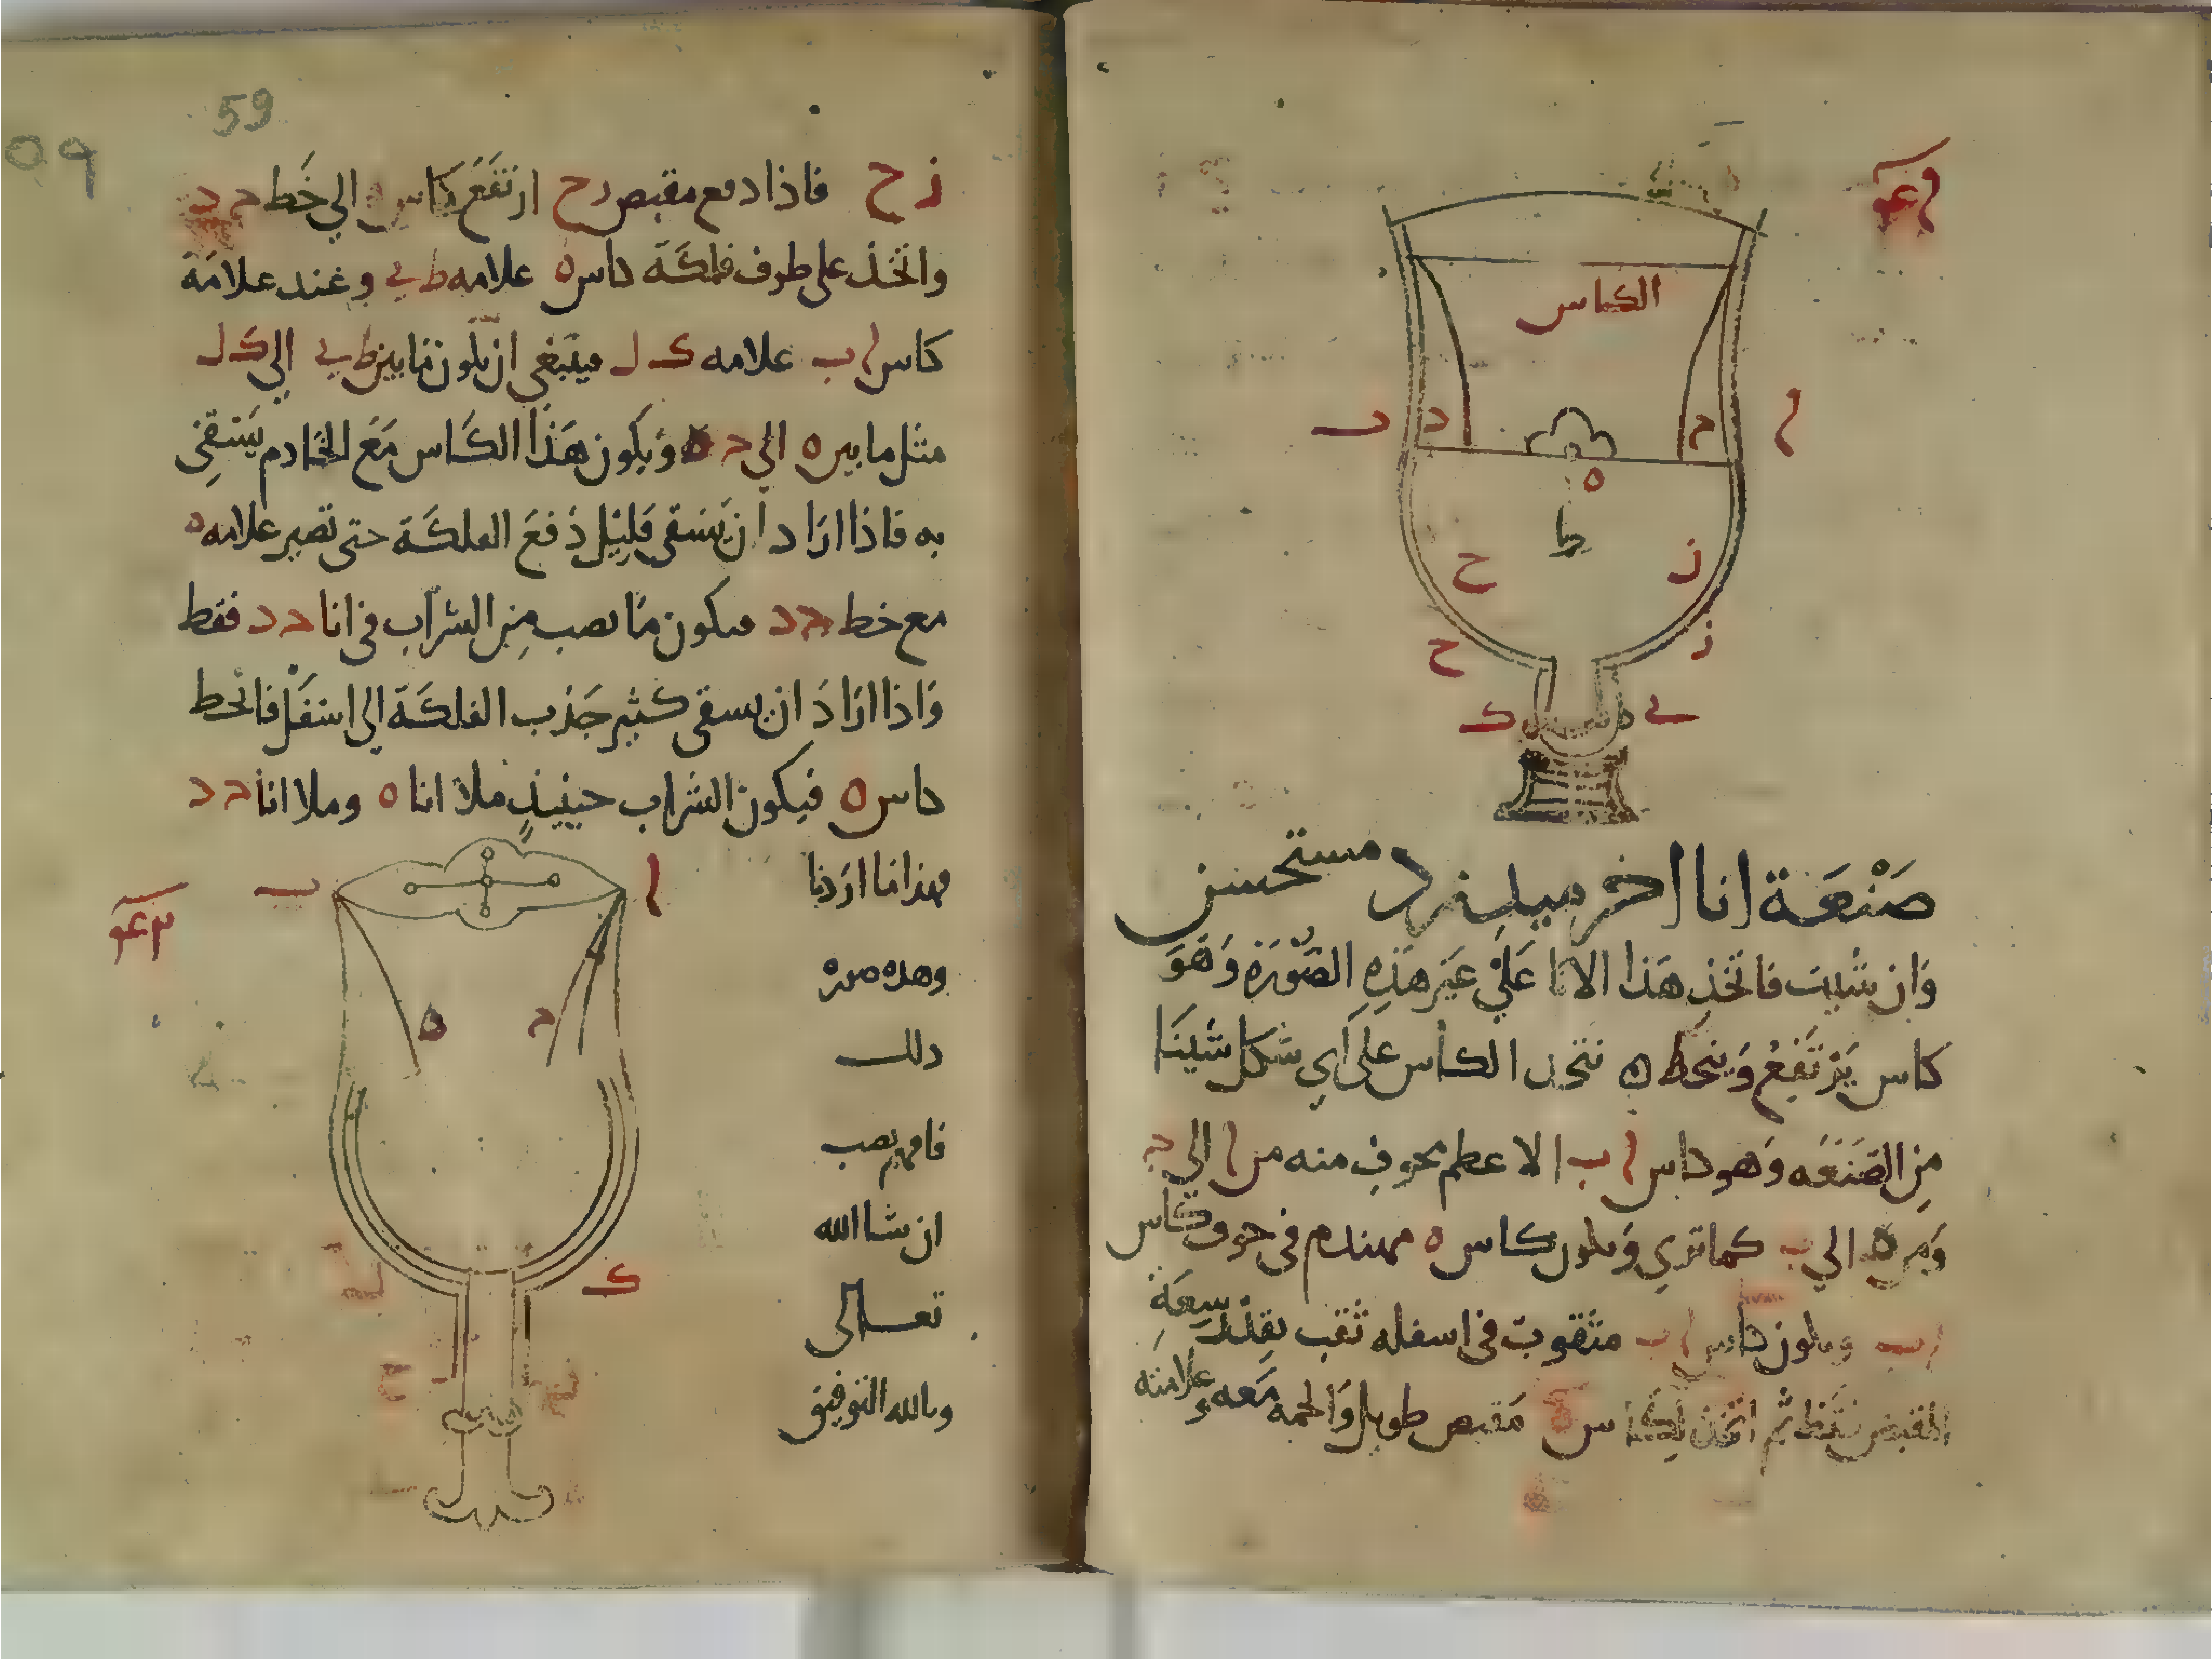 الكاس
ا
ح
د
ب
ه
ط
ز
ح
ز
ح
ى
ك
صَنْعَة انا اخر مستحسن
وَان شيت فاتخذ هَذا الانا عَلَي غَير هَذِهِ الصُّورَة وَهَوَ
كاس يَرْتَفِعُ وَينحَط ه نتخذ الكاس على اي شكل شيْنَا
مِن الصَنعَه وَهو كاس ا ب الاعطم مجوف منه من ا الي ح
وَمن د الي ب كما تري وَيكون كاس ه مهندم في جوف كاس
ا ب ويكون كاس ا ب مثقوب في اسفله ثقب بقدر سِعَةِ
المقبض فقط ثم اتخذ لِكَاس ه مَقبض طويل وَالحمه مَعه وعلامته
59
٥٩
ز ح فاذا دفع مقبض زح ارتفَعَ كاس ه الي خَط ح د
واتخذ على طرف فلكَة كاس ه علامه ط ى وعند علامَة
كاس ا ب علامه ك ل فينبغي ان يكون ما بين ط ى الي ك ل
مثل ما بين ه الي ح د وَيكون هَذا الكَاس مَعَ الخادم يَسْقي
به فاذا ارَاد ان يَسْقى قَلِيْل دَفعَ الفلكَة حتى تصير علامه ه
مع خط ح د فيكون مَا يصب مِن الشراب في انا ح د فقط
وَاذا ارَادَ ان يسقى كثير جَذب الفلكَة الى اسفَلْ فانحط
كاس ه فيكون الشراب حينيذٍ ملا انا ه وملا انا ح د
فهذا ما اردنا
وهذه صورة
ذلك
فافهم تصب
ان شا الله
تعالى
وبالله التوفيق
ا
ب
ح
د
ك
ل